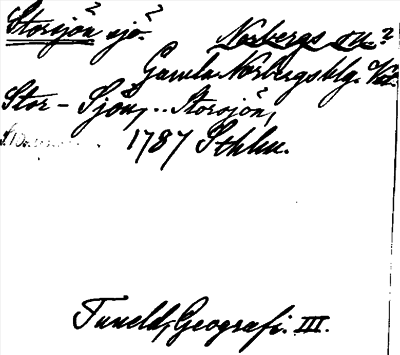 Storsjön? sjö?
Norbergs sn?
Gamla Norbergs blg. Vm.
Stor-Sjön, .. Storsjön?,
1787 Sthlm.
Tuneld, Geografi. III.